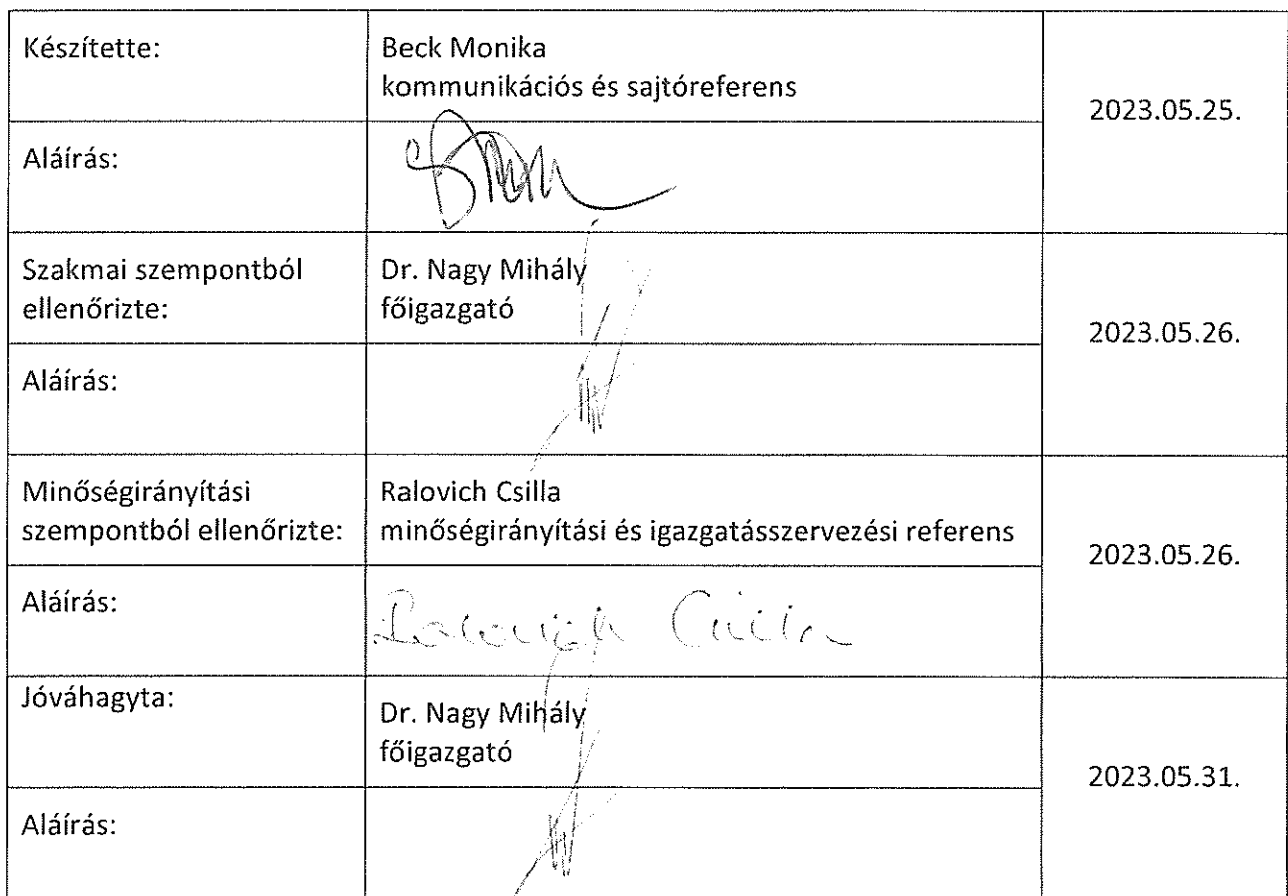 Készítette:
Beck Monika
kommunikációs és sajtóreferens
2023.05.25.
Aláírás:
Szakmai szempontból
ellenőrizte:
Dr. Nagy Mihály
főigazgató
2023.05.26.
Aláírás:
Minőségirányítási
szempontból ellenőrizte:
Ralovich Csilla
minőségirányítási és igazgatásszervezési referens
2023.05.26.
Aláírás:
Ralovich Csilla
Jóváhagyta:
Dr. Nagy Mihály
főigazgató
2023.05.31.
Aláírás: